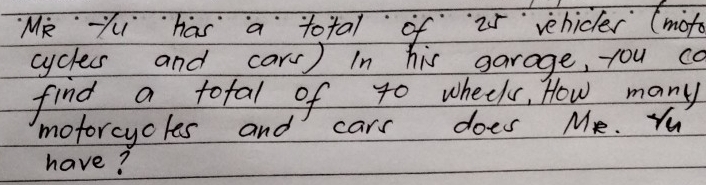 MR Yu has a total of 25 vehicles (moto
cycles and cars) In his garage, you ca
find a total of 70 wheels, How many
motorcycles and cars does Mr. Yu
have?